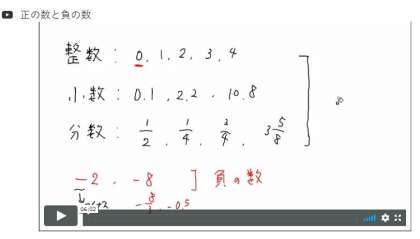 正の数と負の数
整数： 0, 1, 2, 3, 4
小数： 0.1, 2.2, 10.8
分数： 1/2, 1/4, 3/4, 3 5/8
-2, -8 ] 負の数
06:02
, -0.5